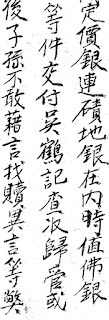 定價銀連磧地銀在內時值佛銀
等件交付吳鶴記查收歸管或
後子孫不敢藉言找贖異言等弊